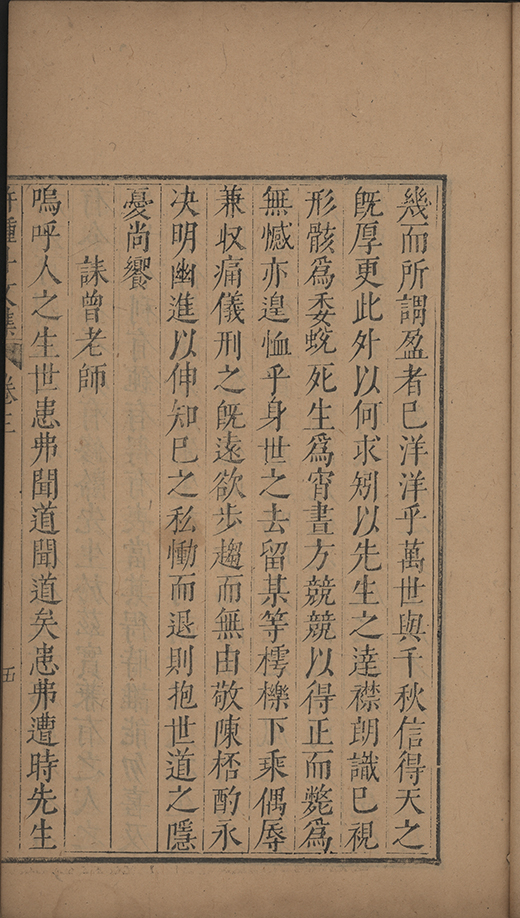 幾而所謂盈者已洋洋乎萬世與千秋信得天之
既厚更此外以何求矧以先生之達襟朗識已視
形骸為委蛻死生為宵晝方兢兢以得正而斃為
無憾亦遑恤乎身世之去留某等樗櫟下乘偶辱
兼収痛儀刑之既遠欲步趨而無由敬陳桮酌永
决明幽進以伸知已之私慟而退則抱世道之隱
憂尚饗
誄曾老師
嗚呼人之生世患弗聞道聞道矣患弗遭時先生
文集
卷三
五